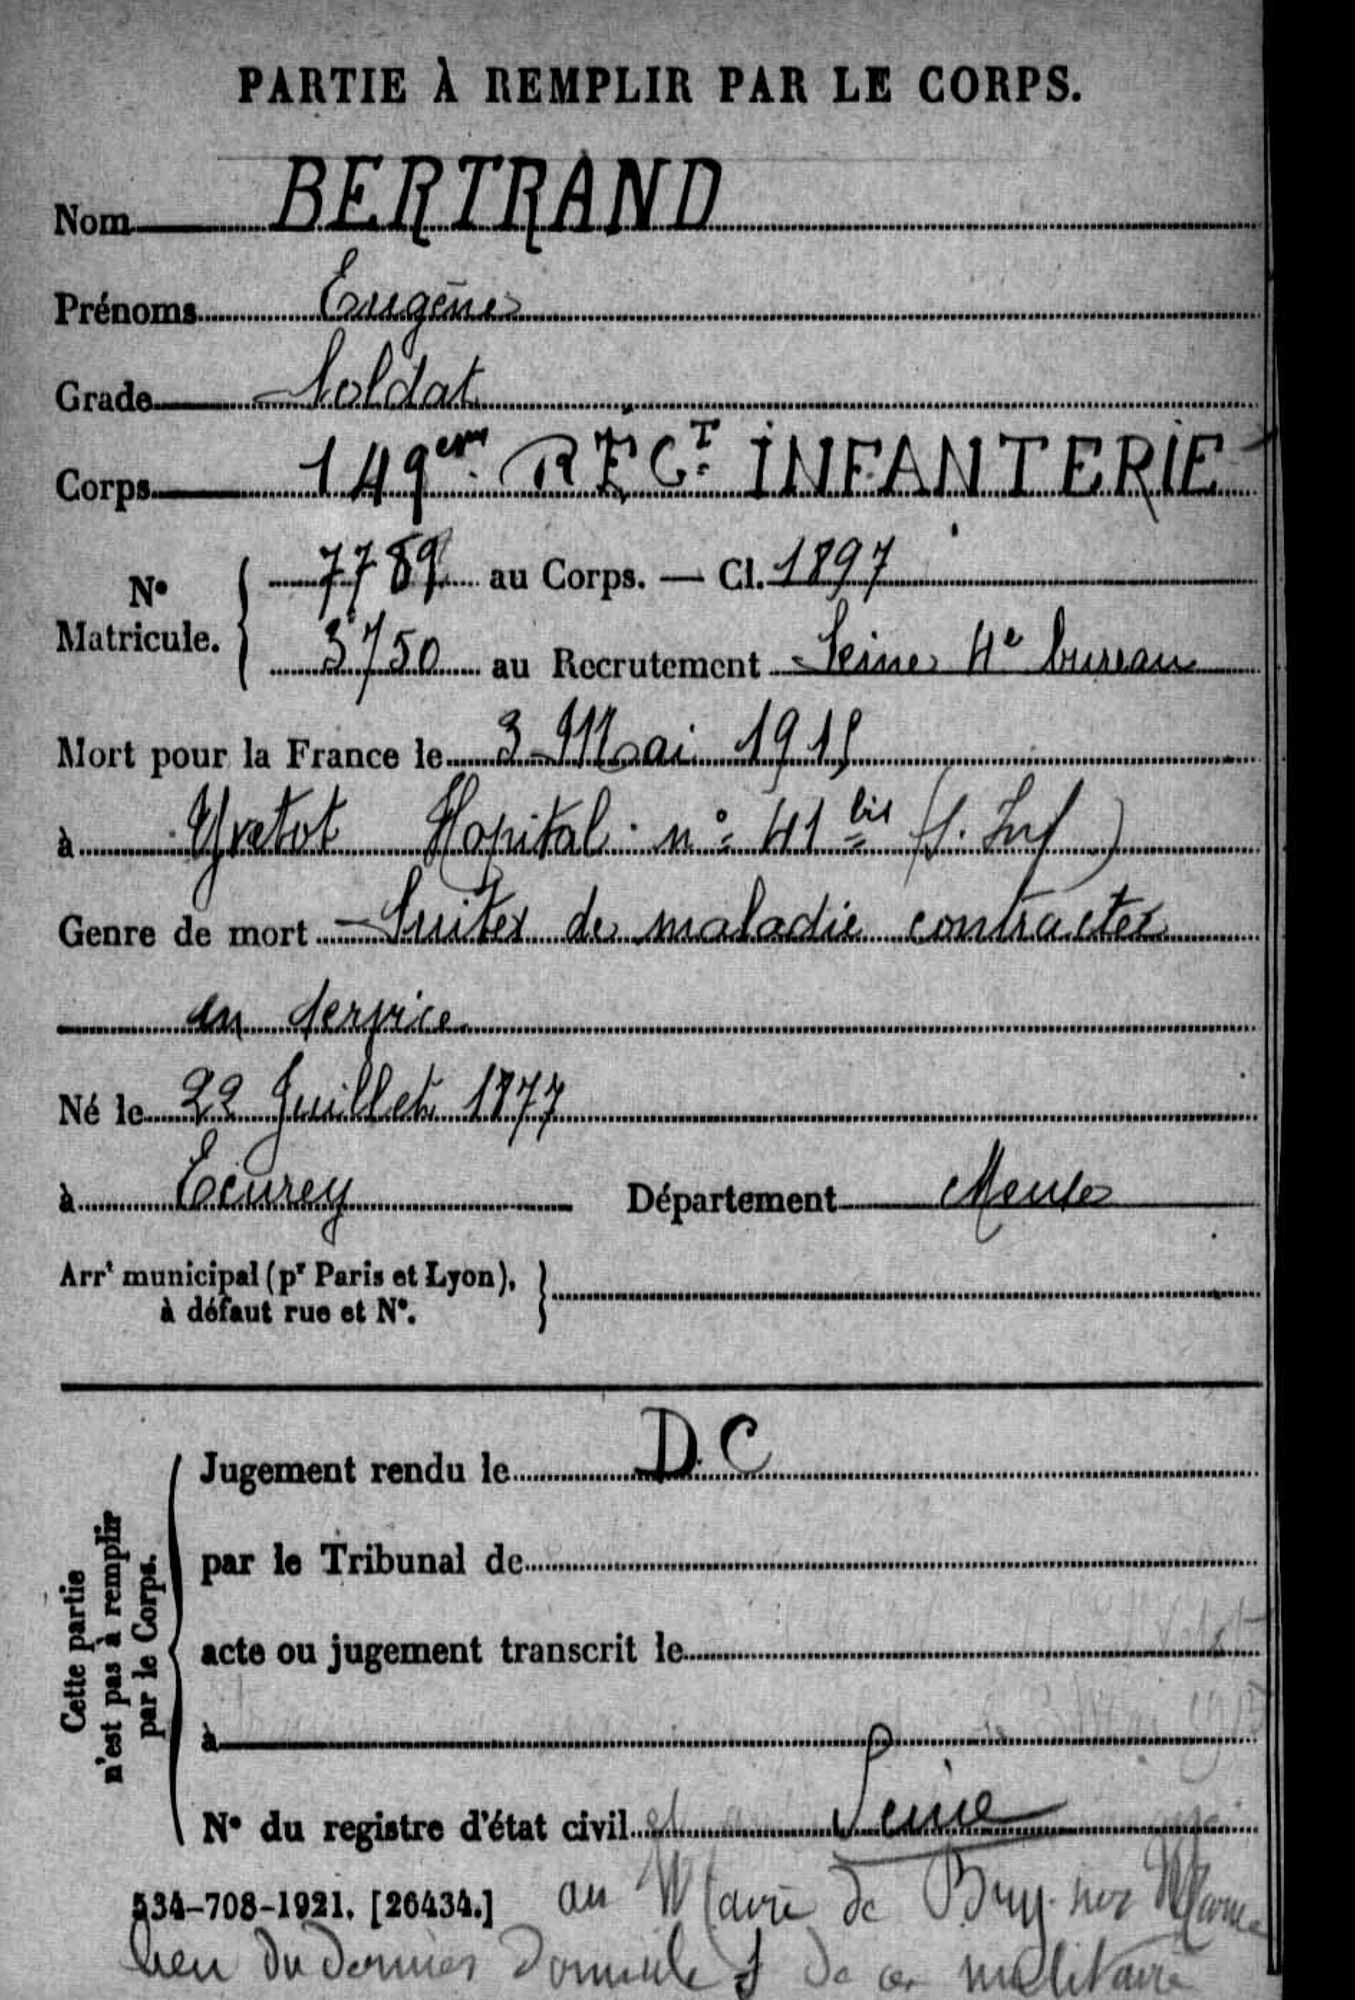 PARTIE À REMPLIR PAR LE CORPS.
Nom BERTRAND
Prénoms Eugène
Grade Soldat
Corps 149eme RÉGT INFANTERIE
No Matricule. { 7789 au Corps. — Cl. 1897
3750 au Recrutement Seine 4e bureau
Mort pour la France le 3 Mai 1915
à Yvetot Hopital no 41 bis (S. Inf)
Genre de mort Suites de maladie contractée
en service
Né le 22 Juillet 1877
à Ecurey Département Meuse
Arrt municipal (pr Paris et Lyon),
à défaut rue et No.
Cette partie
n'est pas à remplir
par le Corps.
Jugement rendu le D.C
par le Tribunal de
acte ou jugement transcrit le
à
No du registre d'état civil Seine
534-708-1921. [26434.] au Maire de Bry sur Marne
lieu du dernier Domicile de ce militaire